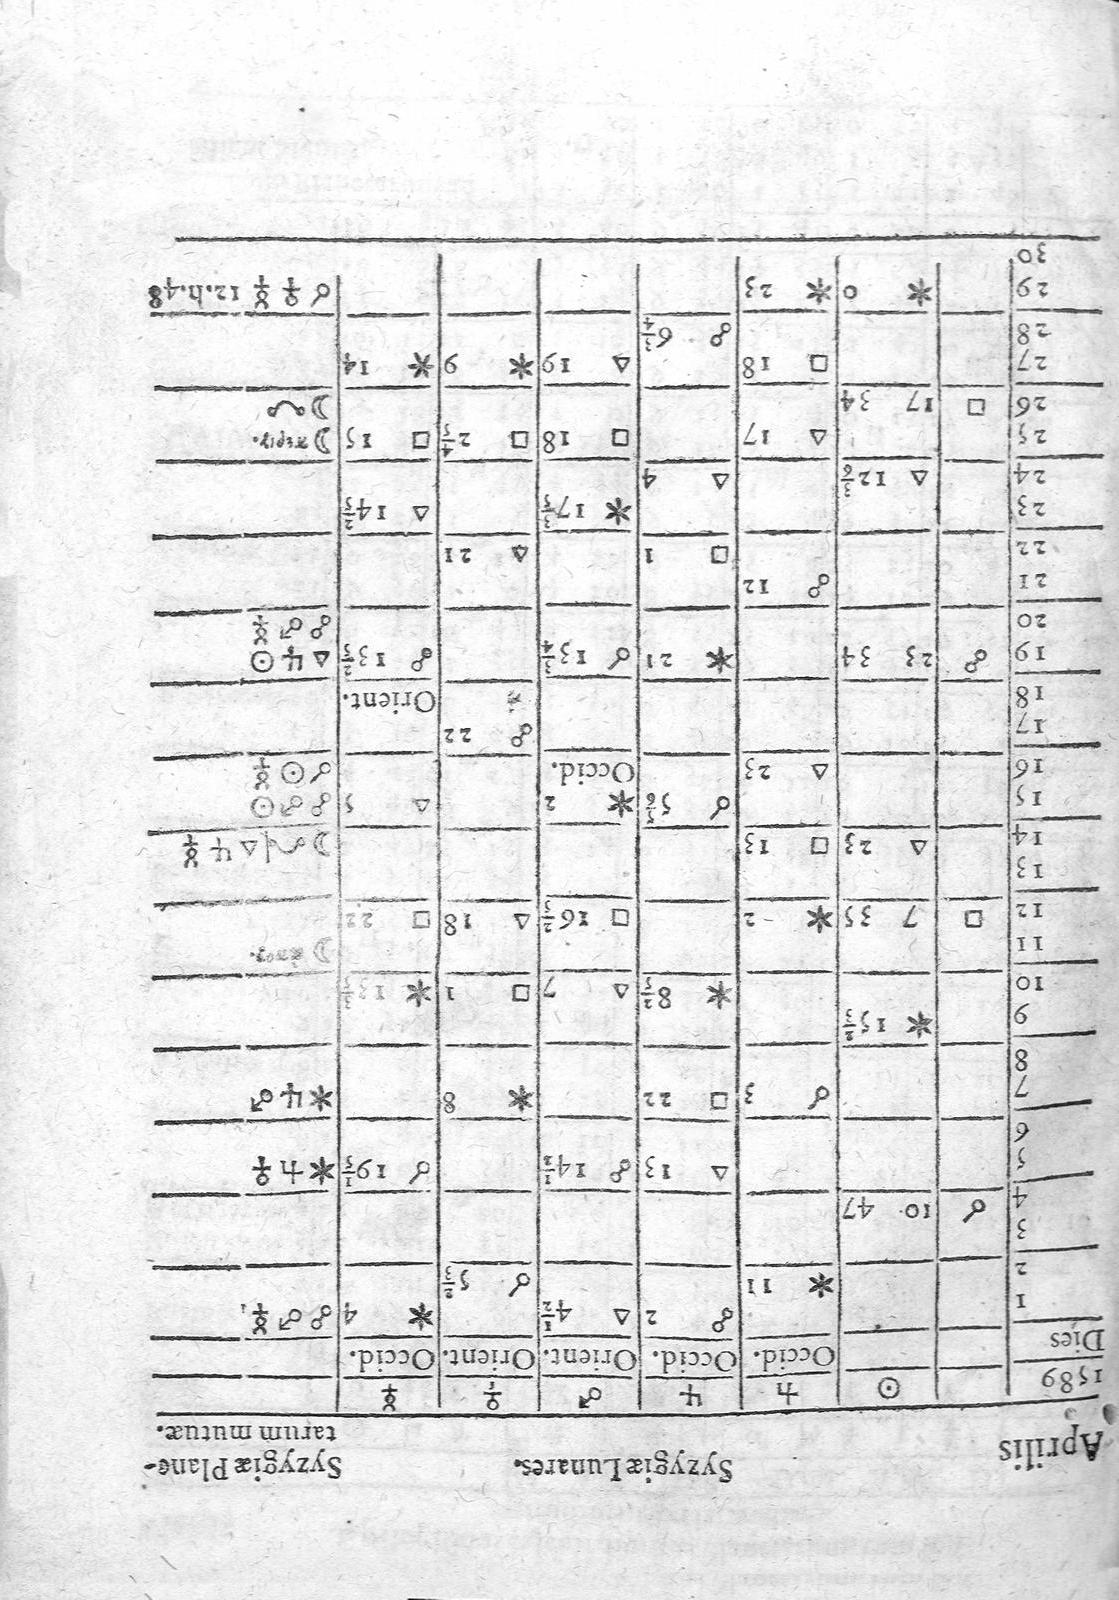 Aprilis Syzygiæ Lunares. Syzygiæ Plane-
tarum mutuæ.
1589 ☉ ♄ ♃ ♂ ♀ ☿
Dies Occid. Occid. Orient. Orient. Occid.
1 ☍ 2 △ 4 1/2 ✶ 4 ☍ ♂ ☿.
2 ✶ 11 ☌ 5 2/3
3
4 ☌ 10 47
5 △ 13 ☍ 14 1/2 ☌ 19 1/5 ✶ ♄ ♀
6
7 ☌ 3 □ 22 ✶ 8 ✶ ♃ ♂
8
9 ✶ 15 2/3
10 ✶ 8 2/5 △ 7 □ 1 ✶ 13 3/5
11 ☽ ἀπογ.
12 □ 7 35 ✶ 2 □ 16 2/3 △ 18 □ 22
13
14 △ 23 □ 13 ☽ △ ♃ ☿
15 ☌ 5 5/6 ✶ 2 △ 5 ☍ ♂ ☉
16 △ 23 Occid. ☌ ☉ ☿
17 ☍ 22
18 Orient.
19 ☍ 23 34 ✶ 21 ☌ 13 3/4 ☍ 13 2/5 △ ♃ ☉
20 ☍ ♂ ☿
21 ☍ 12
22 □ 1 △ 21
23 ✶ 17 3/5 △ 14 2/5
24 △ 12 △ 4
25 △ 17 □ 18 □ 2 4/5 □ 15 ☽ περιγ.
26 □ 17 34 ☽
27 □ 18 △ 19 ✶ 9 ✶ 14
28 ☍ 6 3/4
29 ✶ 0 ✶ 23 ☌ ♀ ☿ 12.h.48
30